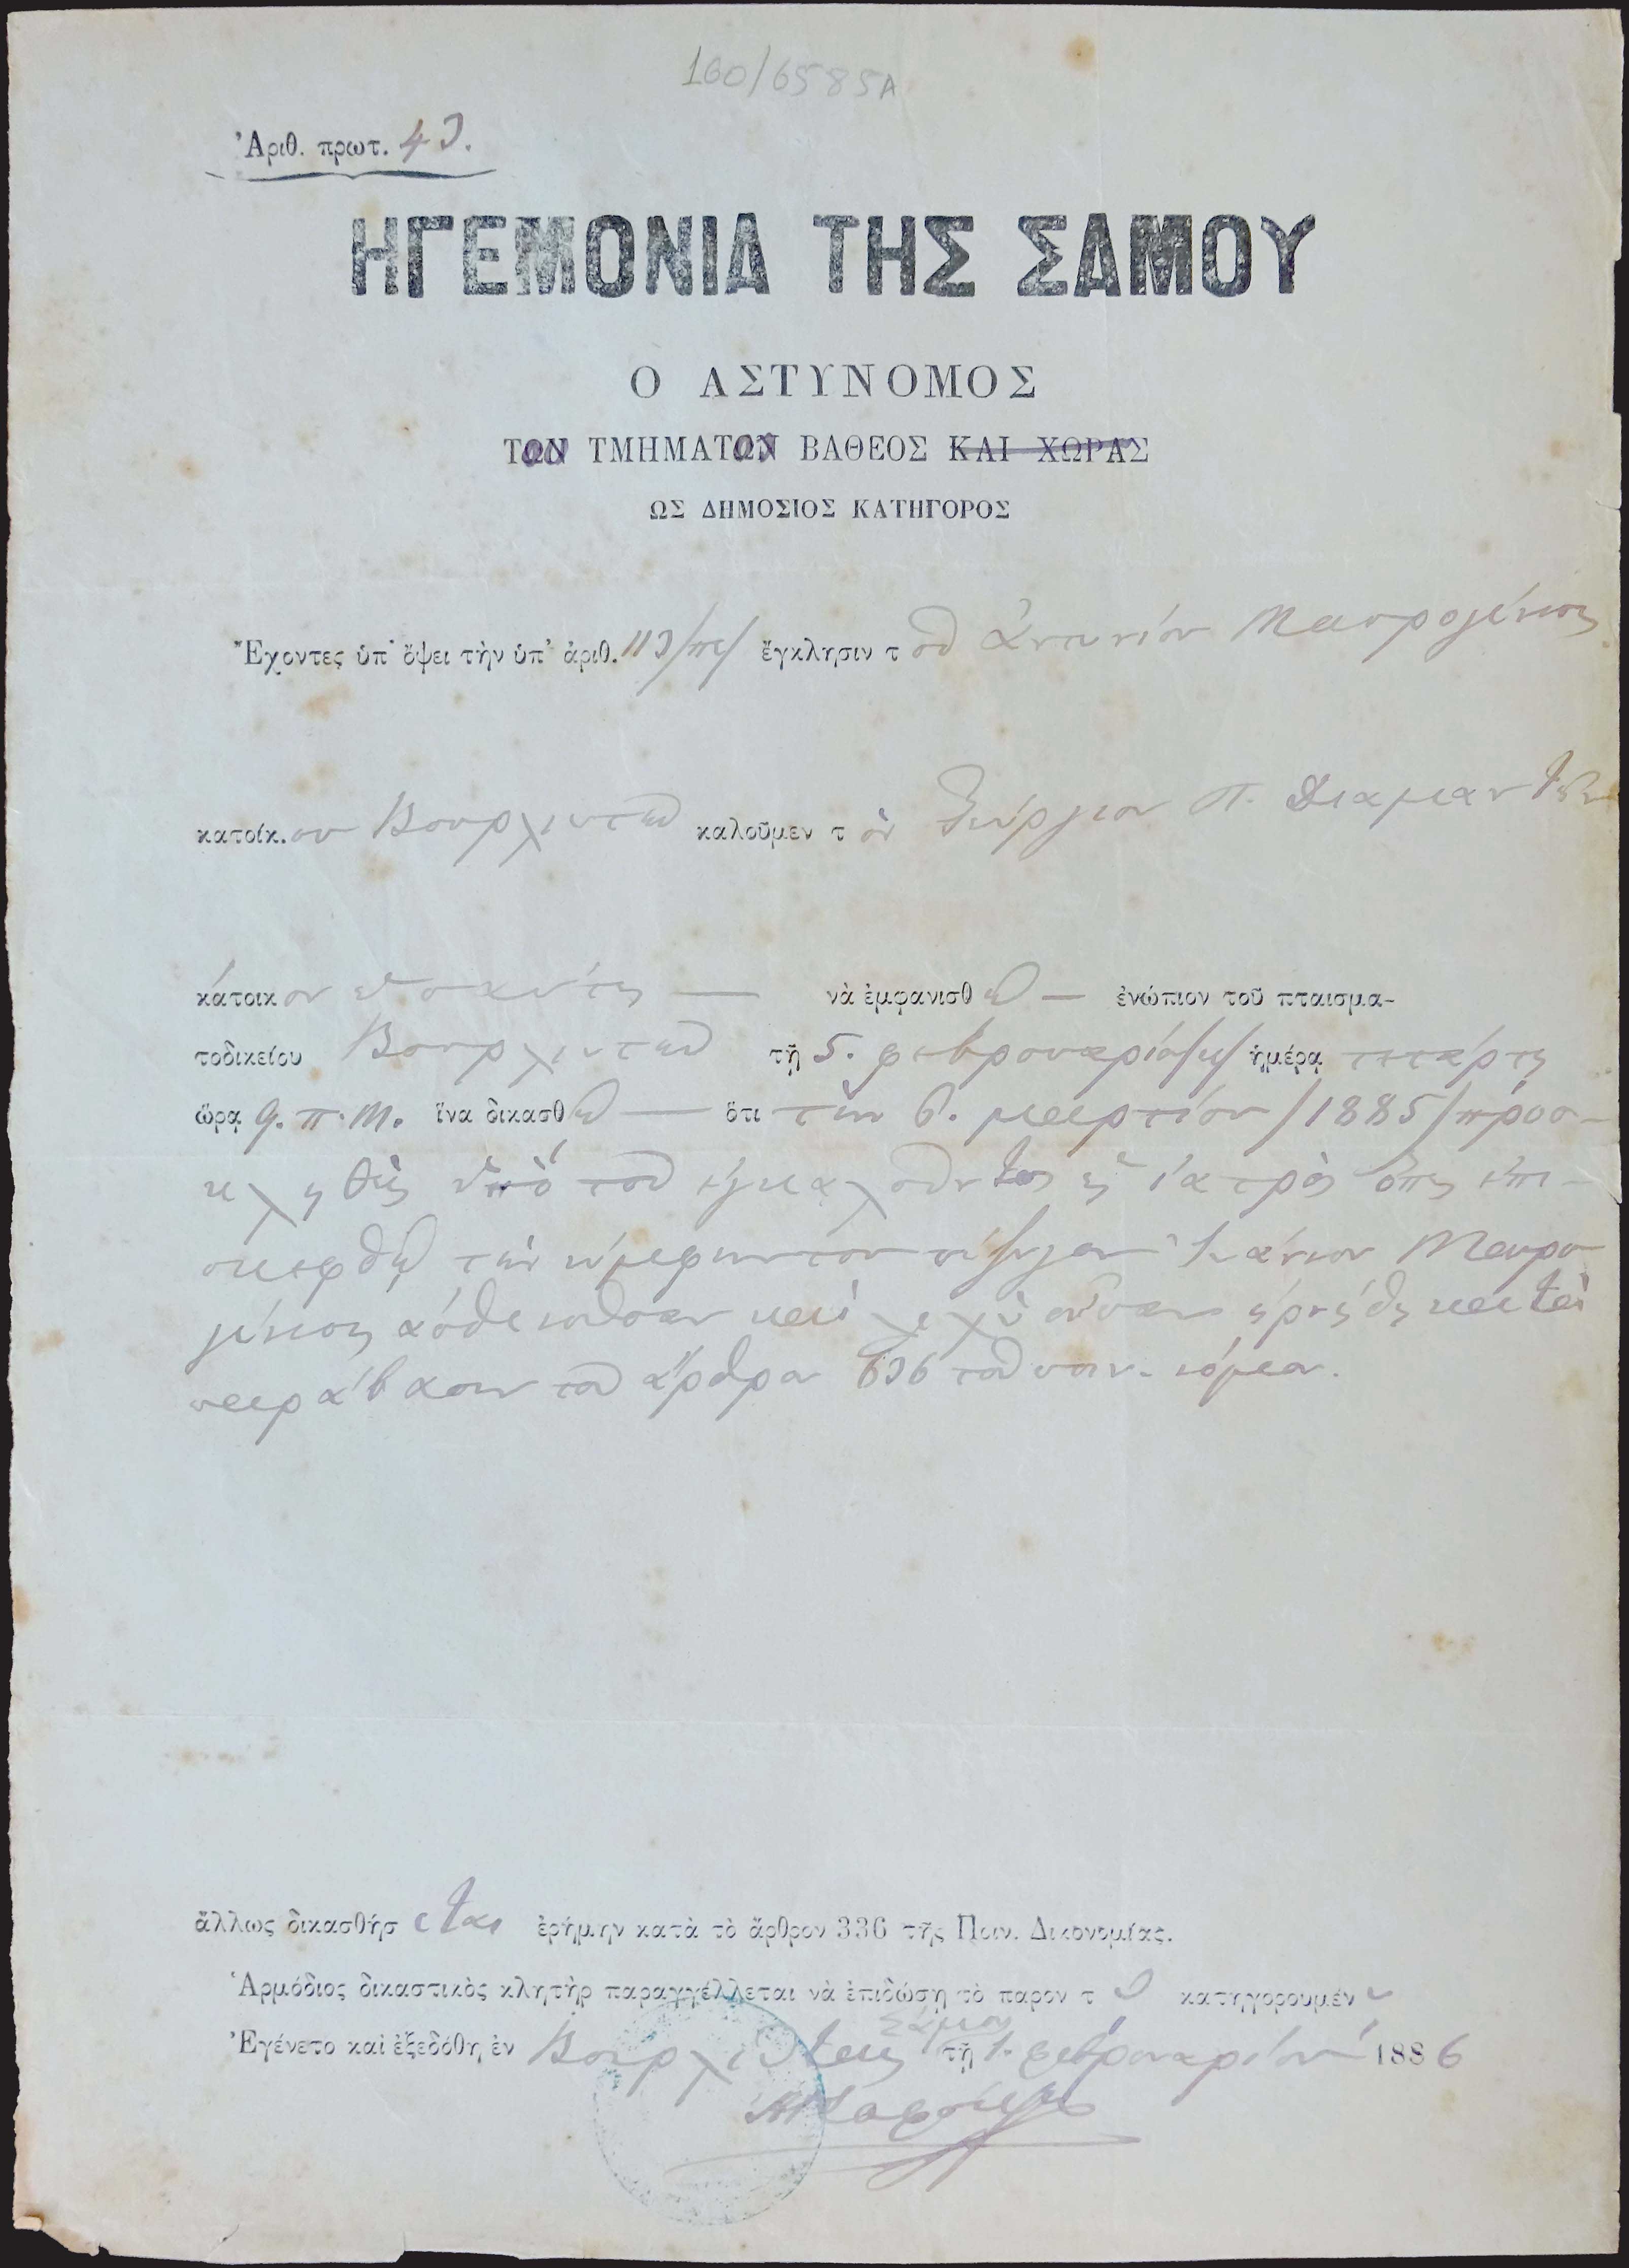 160/6585A
Ἀριθ. πρωτ. 43.
ΗΓΕΜΟΝΙΑ ΤΗΣ ΣΑΜΟΥ
Ο ΑΣΤΥΝΟΜΟΣ
ΤΟΥ ΤΜΗΜΑΤΟΣ ΒΑΘΕΟΣ ΚΑΙ ΧΩΡΑΣ
ΩΣ ΔΗΜΟΣΙΟΣ ΚΑΤΗΓΟΡΟΣ
Ἔχοντες ὑπ' ὄψει τὴν ὑπ' ἀριθ. ἔγκλησιν τοῦ Ἀντωνίου Μαυρογένους
κατοίκ.ου Βουρλιωτῶν καλοῦμεν τὸν Γεώργιον Π.
κάτοικον νὰ ἐμφανισθῇ — ἐνώπιον τοῦ πταισμα-
τοδικείου Βουρλιωτῶν τῇ 5. φεβρουαρίου ἡμέρᾳ τετάρτῃ
ὥρᾳ 9. π. μ. ἵνα δικασθῇ — ὅτι τὴν 6. μαρτίου /1885/ προσ-
κληθεὶς ὑπὸ τοῦ ἐγκαλοῦντος ὡς ἰατρὸς ὅπως ἐπι-
σκεφθῇ τὴν σύζυγον Μαυρο
γένους ἀσθενοῦσαν καὶ λεχὼ οὖσαν ἠρνήθη κατὰ
παράβασιν τοῦ ἄρθρου 636 τοῦ ποιν. νόμου.
ἄλλως δικασθήσεται ἐρήμην κατὰ τὸ ἄρθρον 336 τῆς Ποιν. Δικονομίας.
Ἁρμόδιος δικαστικὸς κλητὴρ παραγγέλλεται νὰ ἐπιδώσῃ τὸ παρὸν τῷ κατηγορουμένῳ
Ἐγένετο καὶ ἐξεδόθη ἐν Βουρλιώταις Σάμου τῇ 1. φεβρουαρίου 1886